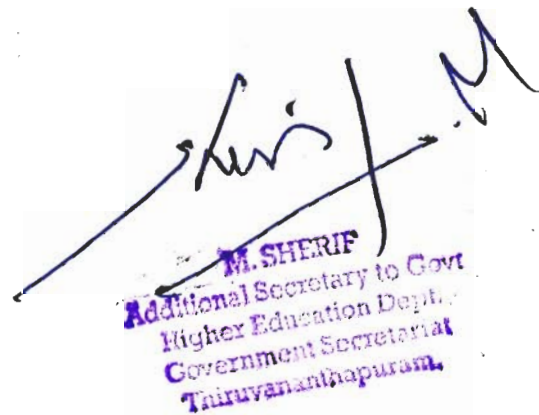 Sherif.M
M. SHERIF
Additional Secretary to Govt
Higher Education Dept.
Government Secretariat
Thiruvananthapuram.